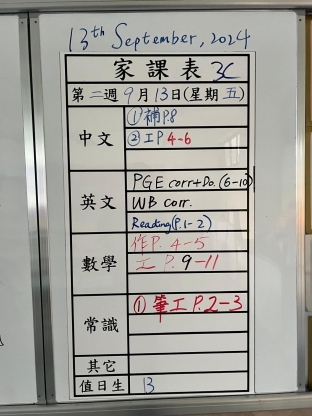 13th September, 2024
家課表 3C
第二週 9月13日(星期五)
中文
①補P.8
②工P 4-6
英文
PGE corr+Do.(6-10)
WB corr.
Reading(P.1-2)
數學
作P. 4-5
工 P. 9-11
常識
① 筆工 P.2-3
其它
值日生 13